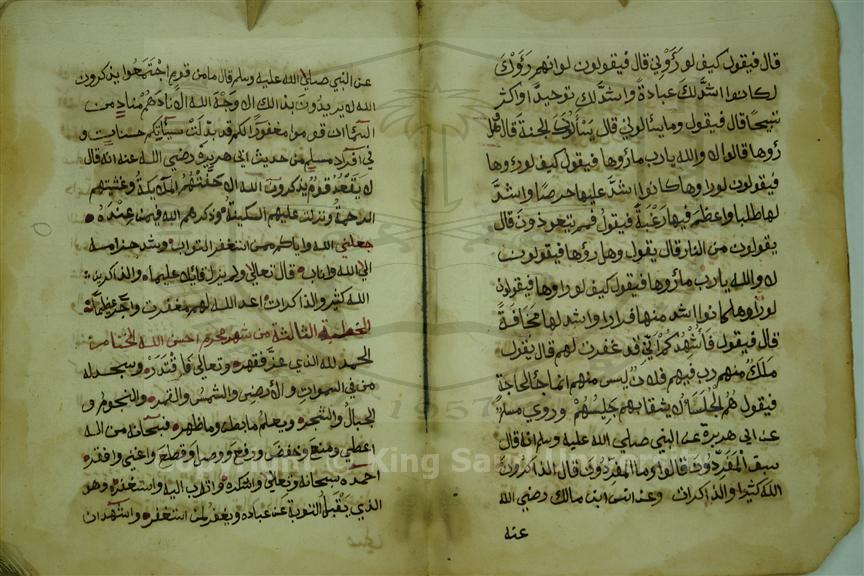 قال فيقول كيف لو رَؤوني قال فيقولون لو انهم رَؤوْكَ
لكانوا اشدَّ لكَ عبادةً واشدَّ لك توحيدًا واكثر
تسبيحًا قال فيقول وما يسألوني قال يَسْألونكَ الجنة قال وهل
رؤها قالوا لا والله يارب مارؤها فيقول كيف لورؤوها
فيقولون لوراوها كانوا اشدَّ عليها حرصًا واشدَّ
لها طلبا واعظمَ فيها رَغْبَةً فيقول فمم يتعوذون قال
يقولون من النار قال يقول وهل رؤها فيقولون
لا والله يارب مارؤها فيقول كيف لوراوها فيقولون
لوراوها كانوا اشد منها فرارا واشد لها مخافةً
قال فيقول فأُشْهِدُكُمْ اني قد غفرت لهم قال يقول
مَلَكٌ منهم رب فيهم فلانٌ ليس منهم انما جاء لحاجة
فيقول هُمُ الجُلَسَاءُ لا يشقا بهم جَلِيسُهُمْ وروي مسلم
عن ابي هريرة عن النبي صلي الله عليه وسلم انه قال
سبق المُفَرِّدُونَ قالوا وما المفردون قال الذاكرون
الله كثيرا والذاكرات وعن انس ابن مالك رضي الله
عنه
عن النبي صلي الله عليه وسلم قال ما من قوم اجتَمعُوا يذكرون
الله لا يريدُونَ بذالك الا وَجْهَ الله الا ناداهُمْ منادٍ من
السمآ ان قوموا مغفورًا لكم قد بدلتْ سيأتكم حسنات و
في افراد مسلم من حديث ابي هريرة رضي الله عنه انه قال
لا يَقْعُدُ قومٌ يذكرون الله الا حَفَّتْهُمُ الملايكةُ وغشيتهم
الرحمةُ ونزلت عليهم السكينةُ وذكرهم الله فيمن عِنْدَهُ
جعلني الله واياكم ممن استغفر التواب وشد حزامه
الي الله واناب قال تعالي ولم يزل قايلا عليما والذاكرين
الله كثيرا والذاكرات اعد الله لهم مغفرة واجرا عظيمًا
الخطبة الثالثة من شهر محرم احسن الله الختام
الحمد لله الذي عزَّ فقهر وتعالي فاقتدَرْ وسجد له
من في السموات والأرضِ والشمسُ والقمر والنجوم و
الجبالُ والشجر ويعلمُ مابطنَ وماظهر فسبحانه من اله
اعطي ومنعَ وخفضَ ورفعَ ووصل وقطعَ واغني وافقر
احمده سبحانه وتعالي واشكره واتوب اليه واستغفره وهو
الذي يَقْبَلُ التوبة عن عباده ويغفر لمن استغفر واشهد ان
Copyright © King Saud University
1957